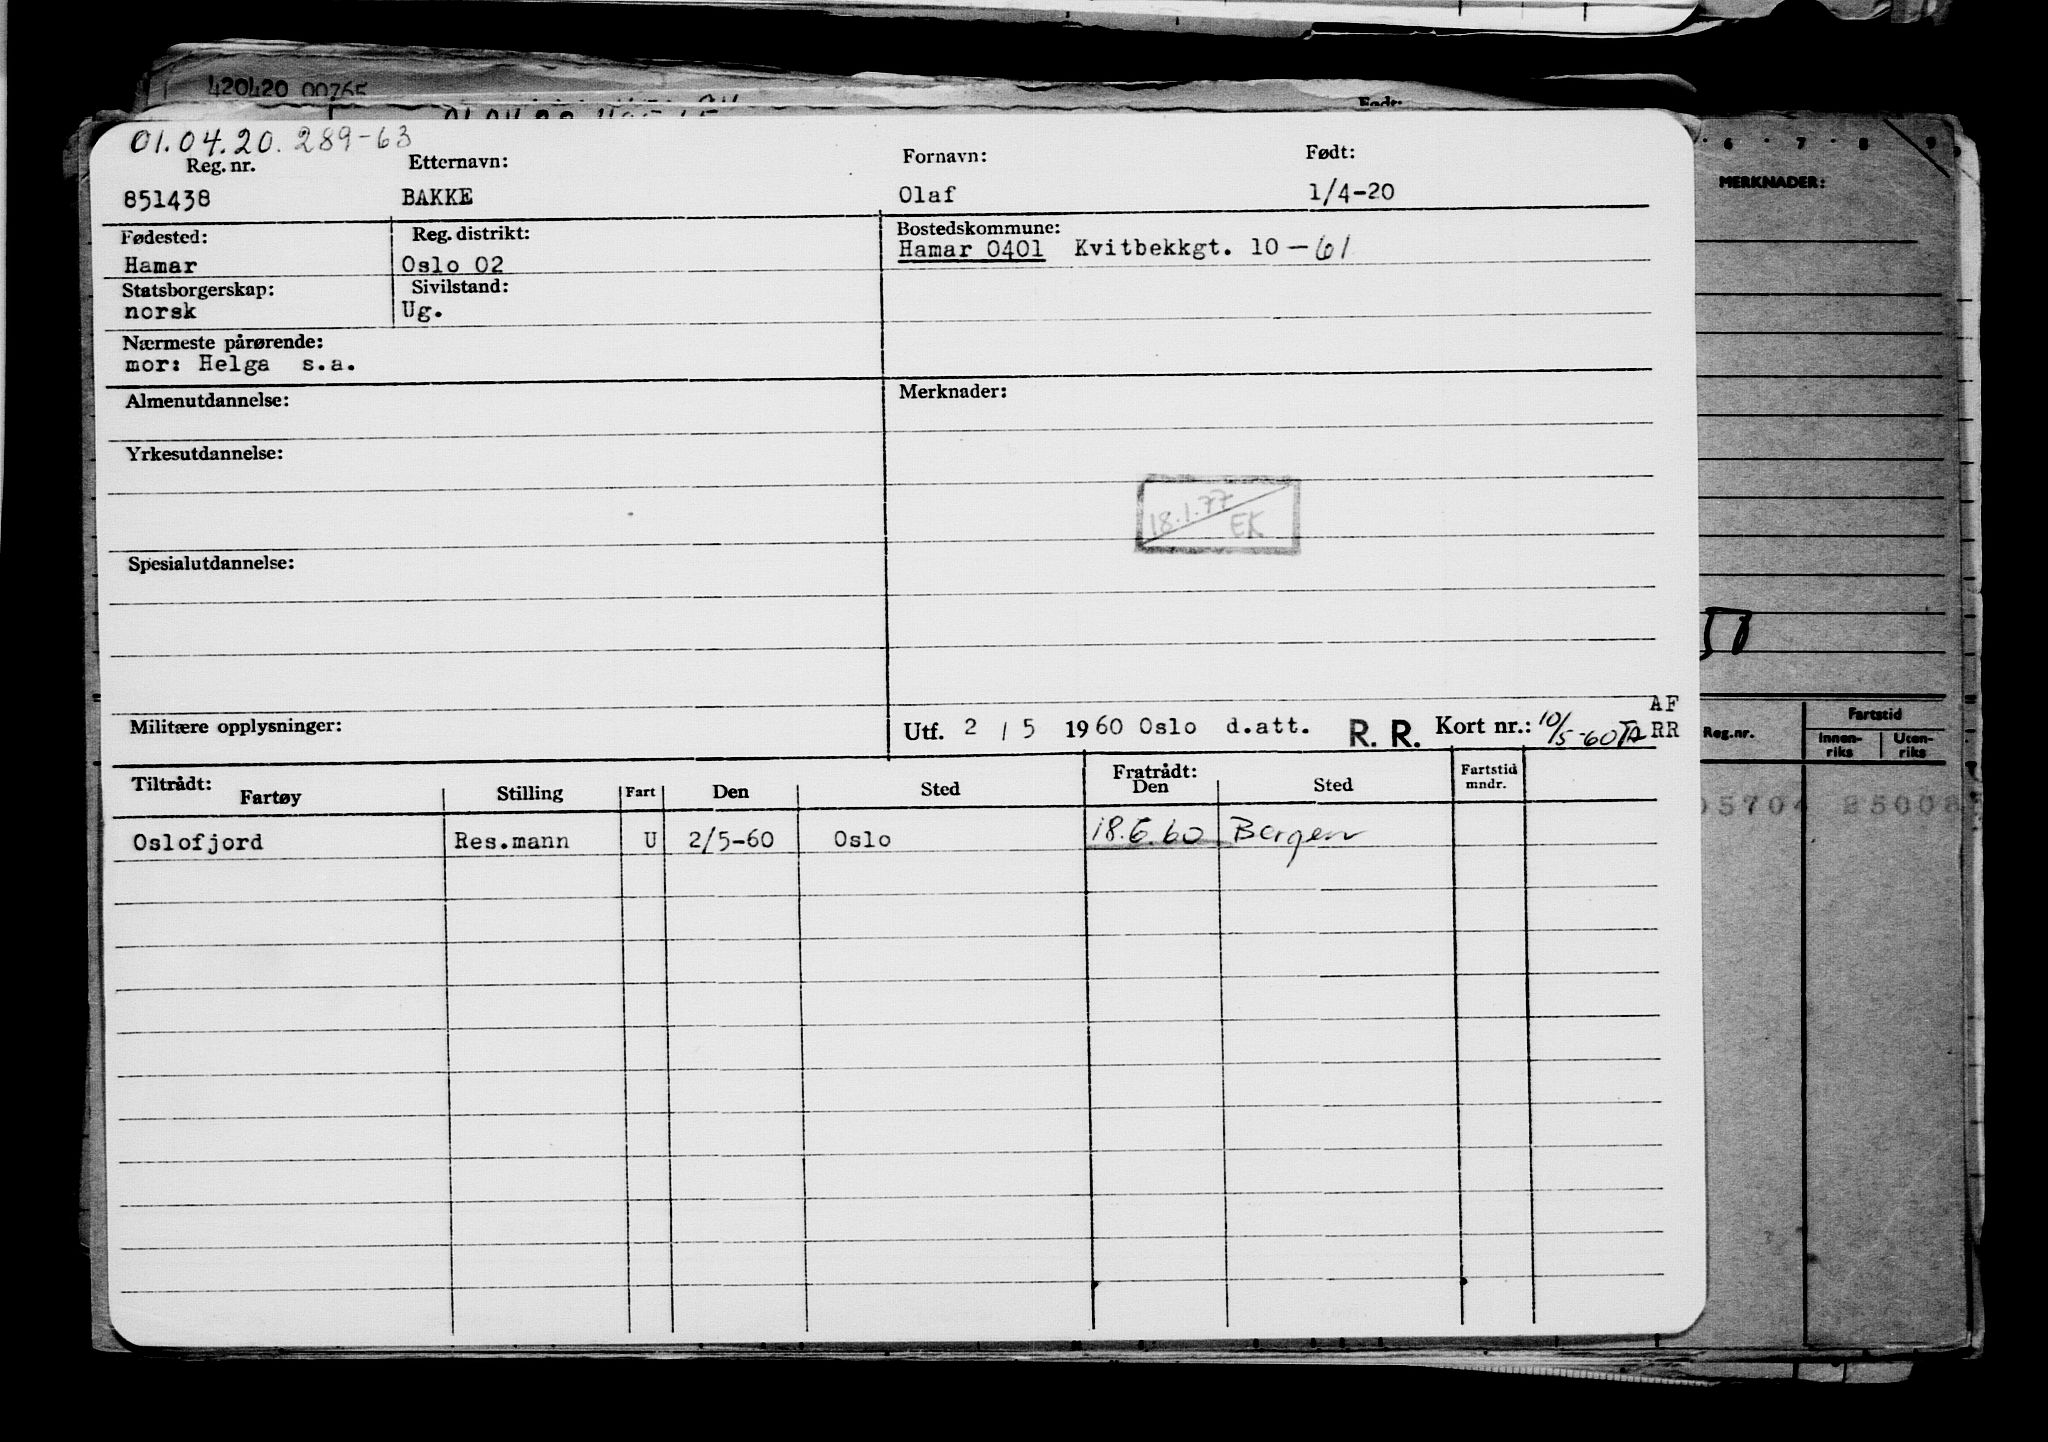 420420 00765
Født:
01.04.20. 289-63
Reg. nr. Etternavn: Fornavn: Født:
851438 BAKKE Olaf 1/4-20
Fødested: Reg. distrikt: Bostedskommune:
Hamar Oslo 02 Hamar 0401 Kvitbekkgt. 10 - 61
Statsborgerskap: Sivilstand:
norsk Ug.
Nærmeste pårørende:
mor: Helga s.a.
Almenutdannelse: Merknader:
Yrkesutdannelse:
18.1.77
EK
Spesialutdannelse:
AF
Militære opplysninger: Utf. 2 / 5 1960 Oslo d.att. R. R. Kort nr.: 10/5-60 RR
Tiltrådt: Fratrådt: Fartstid
Fartøy Stilling Fart Den Sted Den Sted mndr.
Oslofjord Res.mann U 2/5-60 Oslo 18.6.60 Bergen
6 7 8 9
MERKNADER:
Reg.nr. Fartstid
Innen-riks Uten-riks
05704 25008